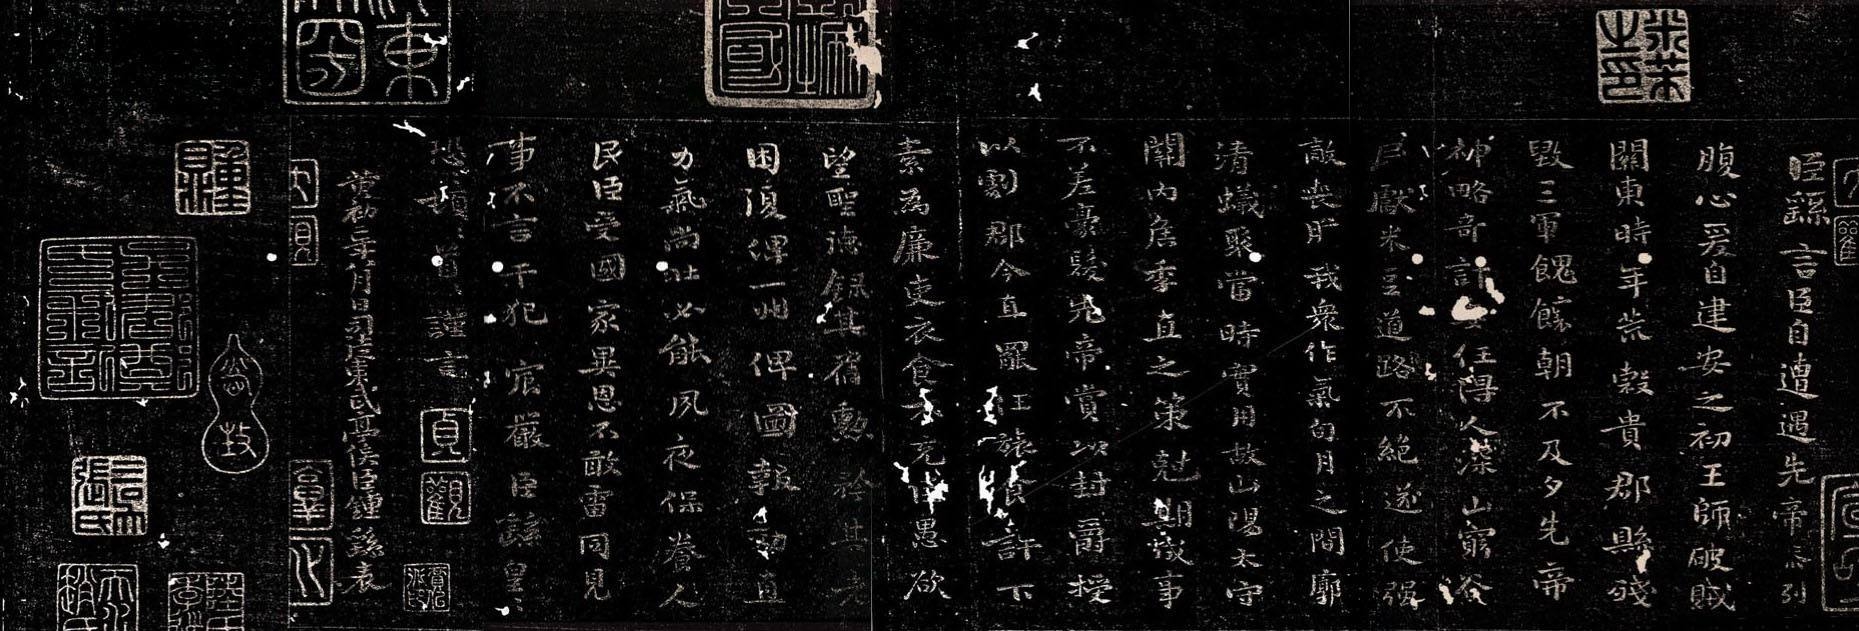 臣繇言臣自遭遇先帝忝列
腹心爰自建安之初王師破賊
關東時年荒穀貴郡縣殘
毀三軍餽饟朝不及夕先帝
神略奇計委任得人深山窮谷
民獻米豆道路不絕遂使强
敵喪膽我衆作氣旬月之間廓
清蟻聚當時實用故山陽太守
關內侯季直之策剋期成事
不差豪髮先帝賞以封爵授
以劇郡今直罷任旅食許下
素為廉吏衣食不充臣愚欲
望聖德錄其舊勳矜其老
困復俾一州俾圖報効直
力氣尚壯必能夙夜保養人
民臣受國家異恩不敢雷同見
事不言干犯宸嚴臣繇皇〻
恐〻頓〻首〻謹言
黃初二年八月日司徒東武亭侯臣鍾繇表